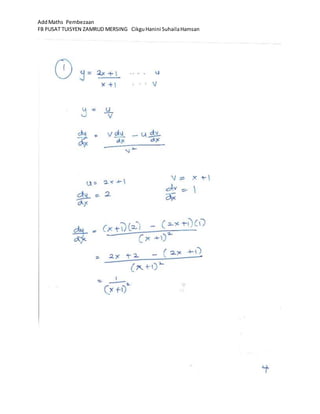 Add Maths Pembezaan
FB PUSAT TUISYEN ZAMRUD MERSING Cikgu Hanini Suhaila Hamsan
① y = 2x + 1 / x + 1 ... u ... v
y = u / v
dy/dx = (v du/dx - u dv/dx) / v²
u = 2x + 1 v = x + 1
du/dx = 2 dv/dx = 1
dy/dx = ((x + 1)(2) - (2x + 1)(1)) / (x + 1)²
= (2x + 2 - (2x + 1)) / (x + 1)²
= 1 / (x + 1)²
4